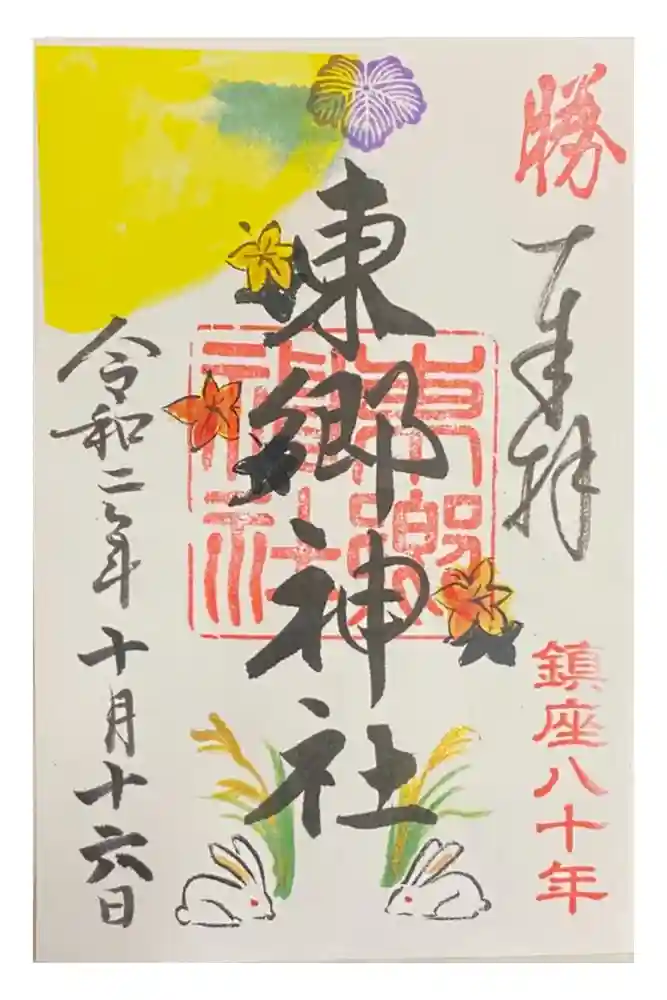 勝
奉拝
鎮座八十年
東郷神社
東郷
神社
令和二年十月十六日